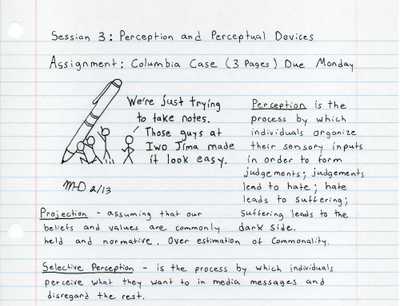 Session 3: Perception and Perceptual Devices
Assignment: Columbia Case (3 Pages) Due Monday
We're just trying
to take notes.
Those guys at
Iwo Jima made
it look easy.
MD 2/13
Perception is the
process by which
individuals organize
their sensory inputs
in order to form
judgements; judgements
lend to hate; hate
leads to suffering;
suffering leads to the
dark side.
Projection - assuming that our
beliefs and values are commonly
held and normative. Over estimation of Commonality.
Selective Perception - is the process by which individuals
perceive what they want to in media messages and
disregard the rest.